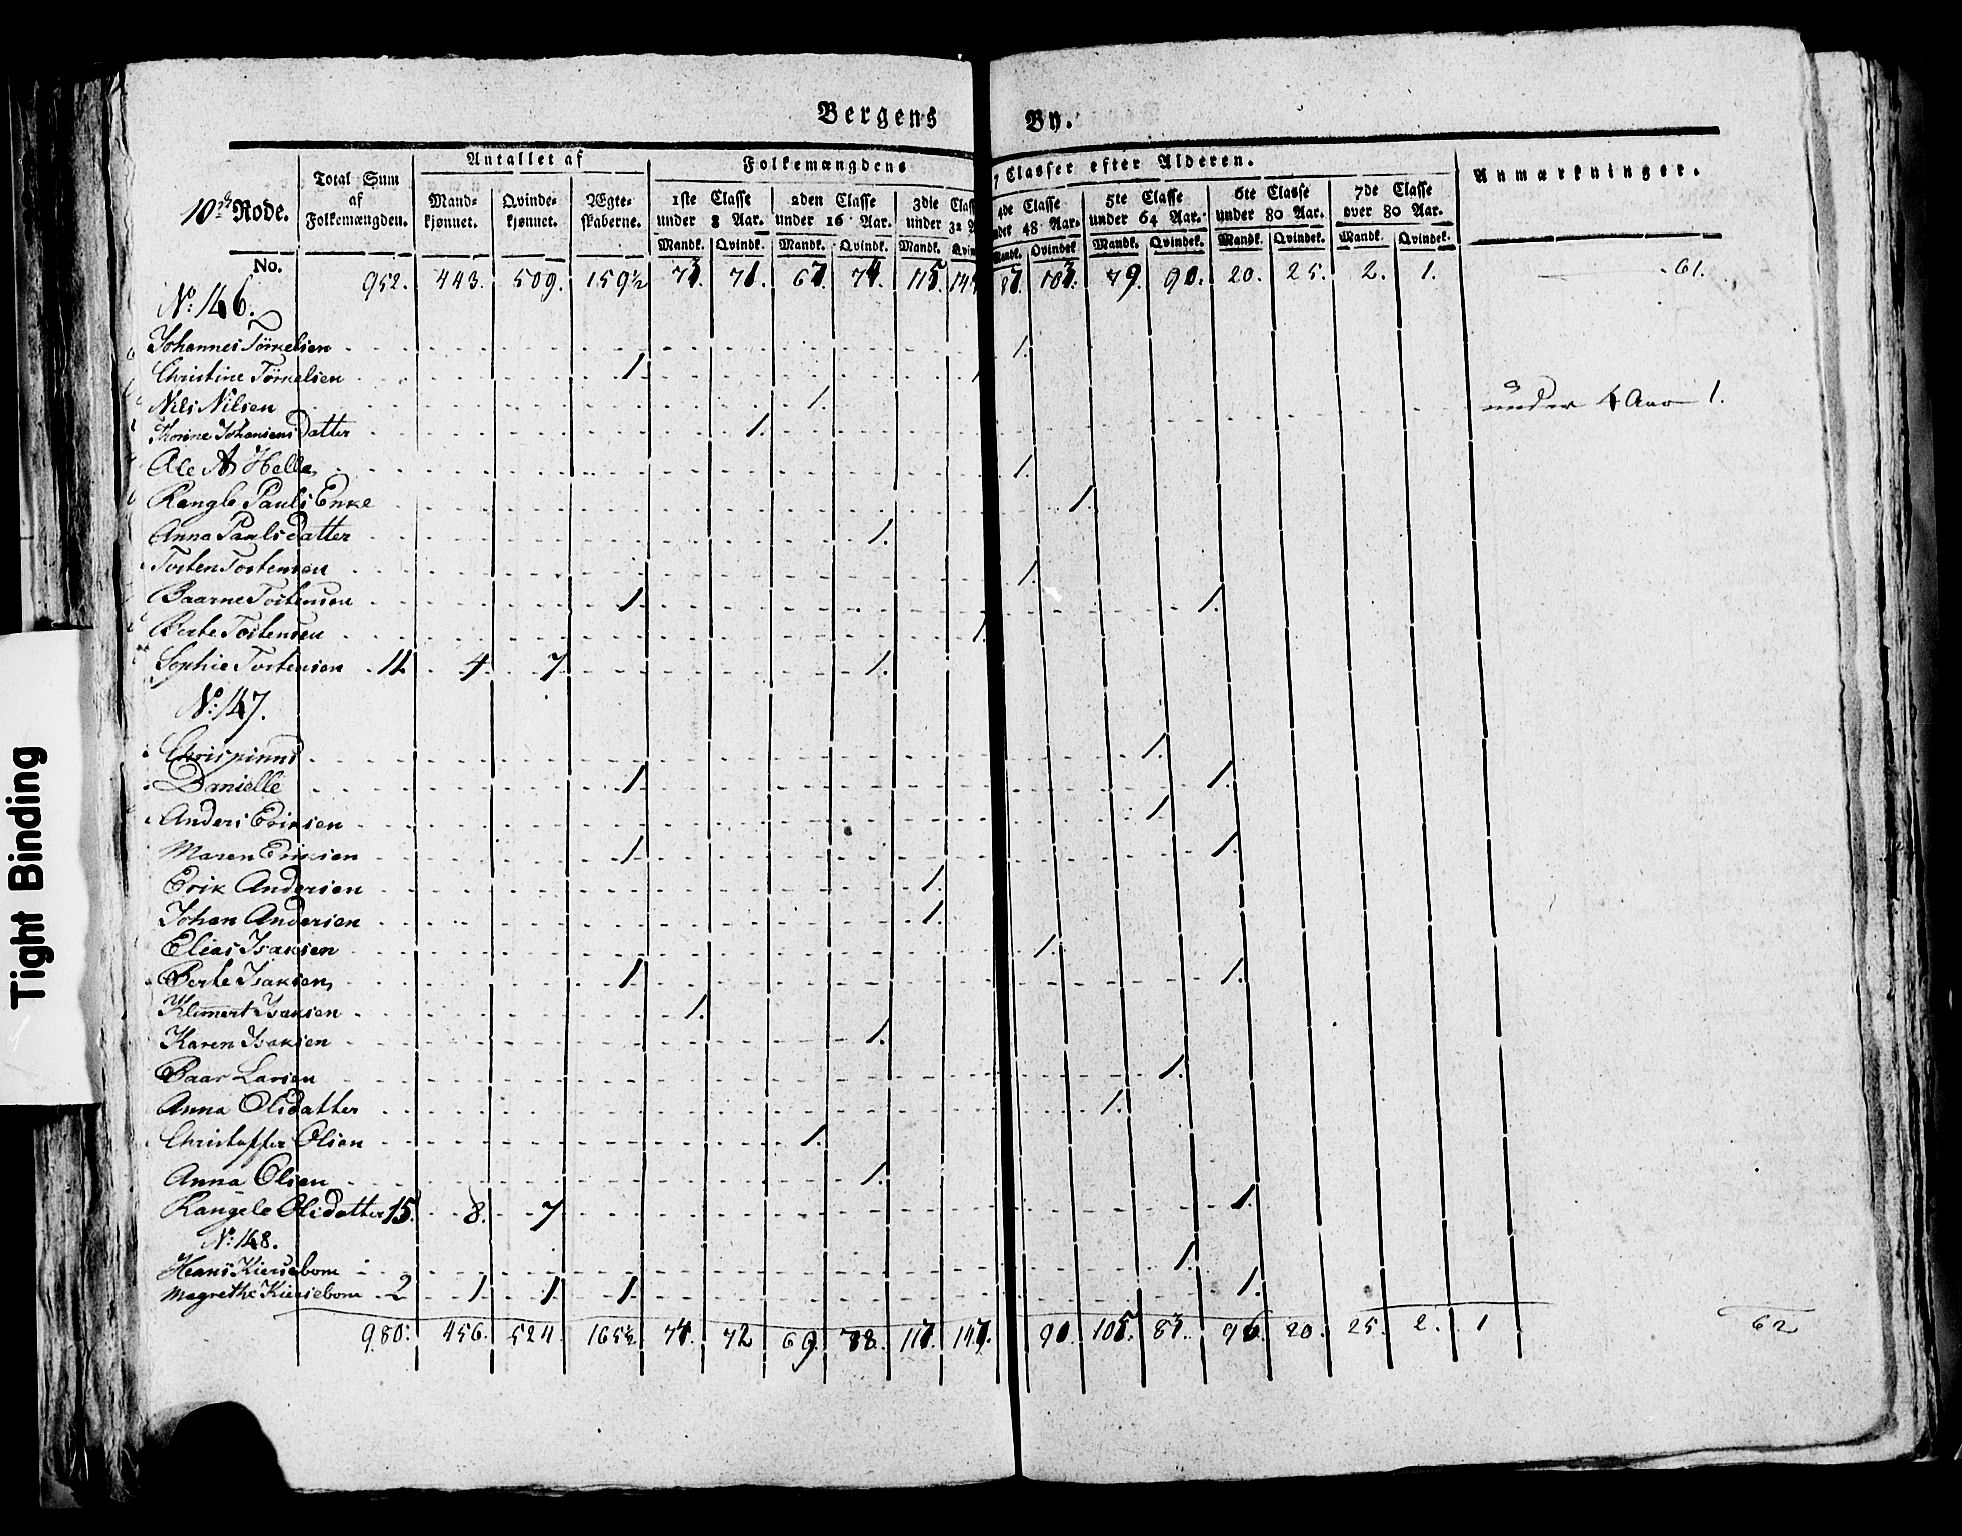 Bergens By.
10de Rode.
Total Sum af Folkemængden.
Antallet af
Mandkjønnet. Qvindekjønnet. Ægteskaberne.
Folkemængdens 7 Classer efter Alderen.
1ste Classe under 8 Aar. 2den Classe under 16 Aar. 3die Classe under 32 4de Classe under 48 Aar. 5te Classe under 64 Aar. 6te Classe under 80 Aar. 7de Classe over 80 Aar.
Anmærkninger.
Mandk. Qvindk. Mandk. Qvindk. Mandk. Mandk. Qvindek. Mandk. Qvindek. Mandk. Qvindek. Mandk. Qvindek.
No. 952. 443. 509. 159½ 73. 71. 67. 74. 115. 144 87. 103. 79. 90. 20. 25. 2. 1. 61.
No: 146.
Johannes Törrelsen 1.
Christine Törrelsen 1. 1
Nils Nilsen 1. under 4 Aar 1.
Thorine Johansens Datter 1.
Ole A Helle 1.
Rangle Pauls Enke 1.
Anna Paulsdatter 1.
Tosten Tostensen 1.
Baarne Tostensen 1. 1.
Berte Tostensen 1.
Sophie Tostensen 11 4. 7 1.
No: 147.
Chrispinus 1.
Danielle 1 1.
Anders Eriksen 1.
Maren Eriksen 1. 1.
Erik Andersen 1.
Johan Andersen 1.
Elias Isaksen 1.
Berte Isaksen 1 1.
Klemert Isaksen 1.
Karen Isaksen 1.
Baar Larsen 1.
Anna Olsdatter 1.
Christoffer Olsen 1.
Anna Olsen 1.
Rangele Olsdatter 15. 8. 7 1.
No: 148.
Hans Kiersebom 1.
Magrethe Kiersebom 2 1. 1 1. 1.
980. 456. 524. 165½ 74. 72 69. 78. 117. 147. 90. 105. 83. 96. 20. 25. 2. 1 62
Tight Binding